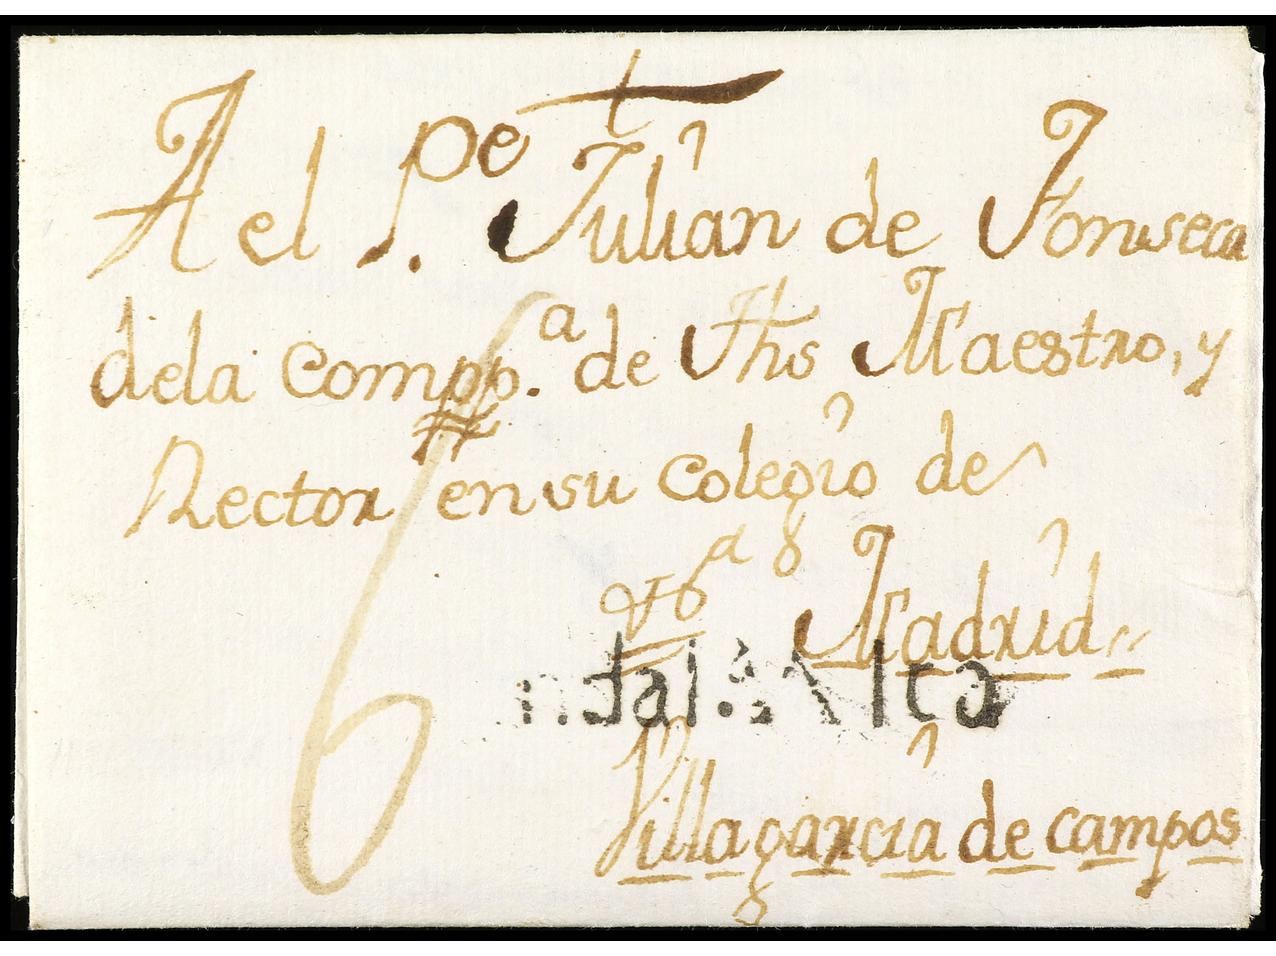 A el P.e Julian de Fonseca
de la Compp.a de Jhs Maestro, y
Rector en su colegio de
Madrid
ndal. Alta
Villagarcia de campos
6